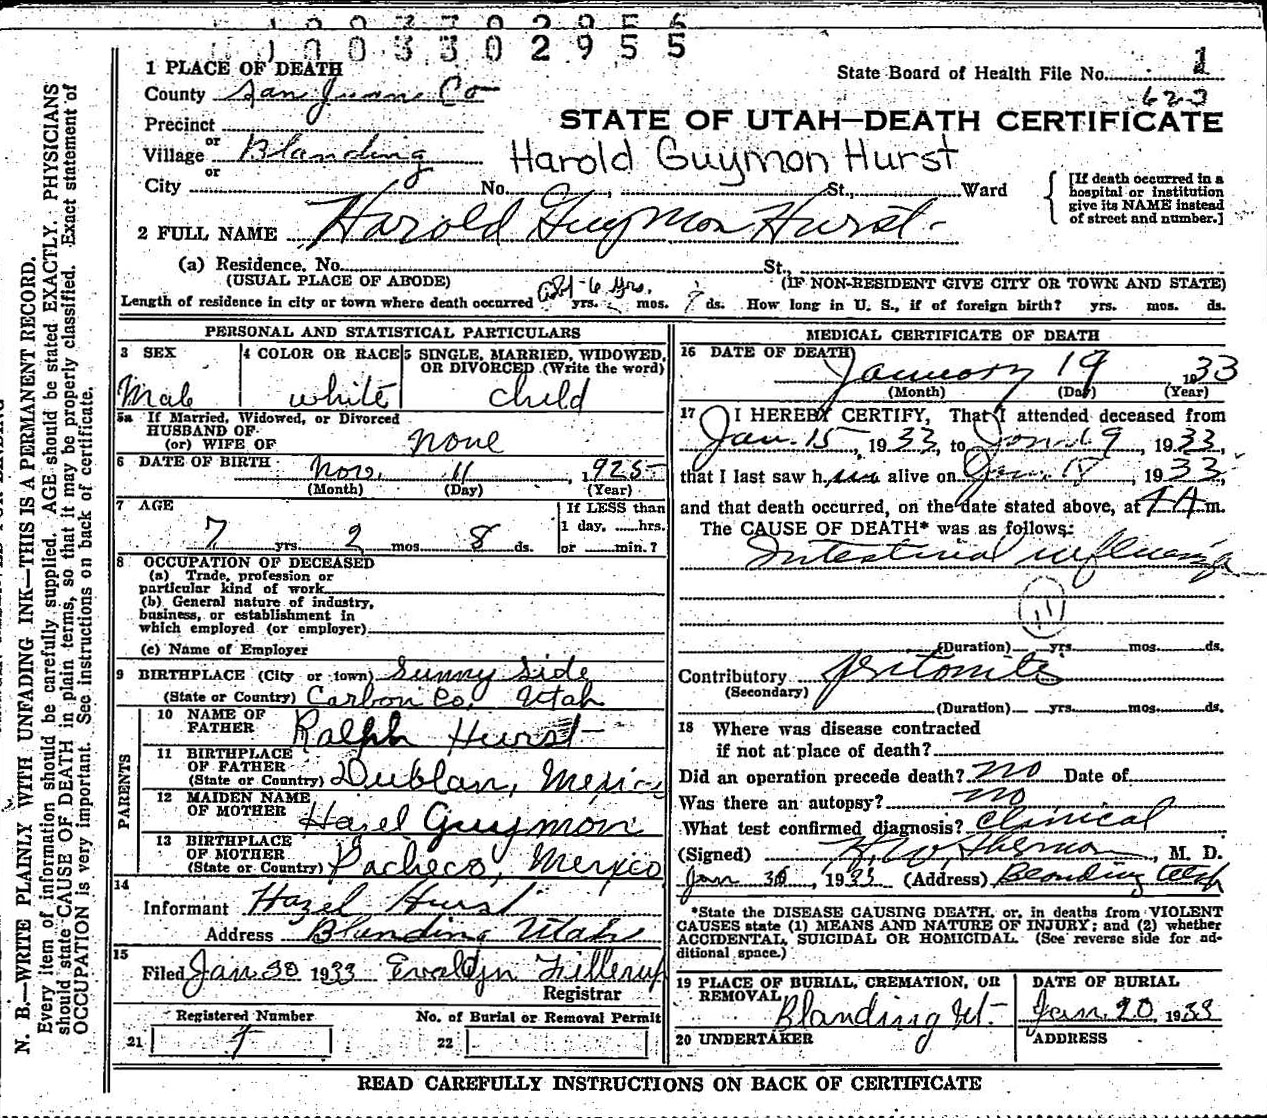 1003302955
1 PLACE OF DEATH
State Board of Health File No. 1
County San Juan Co
623
STATE OF UTAH—DEATH CERTIFICATE
Precinct
or
Village Blanding
Harold Guymon Hurst
or
City No. , St., Ward
[If death occurred in a hospital or institution give its NAME instead of street and number.]
2 FULL NAME Harold Guymon Hurst
(a) Residence. No. St.,
(USUAL PLACE OF ABODE) (IF NON-RESIDENT GIVE CITY OR TOWN AND STATE)
Length of residence in city or town where death occurred 6 yrs. yrs. mos. ds. How long in U. S., if of foreign birth? yrs. mos. ds.
PERSONAL AND STATISTICAL PARTICULARS
3 SEX 4 COLOR OR RACE 5 SINGLE, MARRIED, WIDOWED, OR DIVORCED (Write the word)
Male white child
5a If Married, Widowed, or Divorced
HUSBAND OF
(or) WIFE OF none
6 DATE OF BIRTH Nov. 11, 1925
(Month) (Day) (Year)
7 AGE
7 yrs. 2 mos. 8 ds.
If LESS than
1 day, ......hrs.
or ......min.?
8 OCCUPATION OF DECEASED
(a) Trade, profession or
particular kind of work
(b) General nature of industry,
business, or establishment in
which employed (or employer)
(c) Name of Employer
9 BIRTHPLACE (City or town) Sunny Side
(State or Country) Carbon Co. Utah
PARENTS
10 NAME OF
FATHER Ralph Hurst
11 BIRTHPLACE
OF FATHER
(State or Country) Dublan, Mexico
12 MAIDEN NAME
OF MOTHER Hazel Guymon
13 BIRTHPLACE
OF MOTHER
(State or Country) Pacheco, Mexico
14
Informant Hazel Hurst
Address Blanding Utah
15
Filed Jan 20 1933 Evalyn Fillerup
Registrar
Registered Number No. of Burial or Removal Permit
21 22
MEDICAL CERTIFICATE OF DEATH
16 DATE OF DEATH
January 19 1933
(Month) (Day) (Year)
17 I HEREBY CERTIFY, That I attended deceased from
Jan. 15, 1933, to Jan 19, 1933,
that I last saw him alive on Jan. 18, 1933,
and that death occurred, on the date stated above, at m.
The CAUSE OF DEATH* was as follows:
Intestinal influenza
(Duration) yrs. mos. ds.
Contributory peritonitis
(Secondary)
(Duration) yrs. mos. ds.
18 Where was disease contracted
if not at place of death?
Did an operation precede death? no Date of
Was there an autopsy? no
What test confirmed diagnosis? clinical
(Signed) , M. D.
Jan , 1933 (Address) Blanding Utah
*State the DISEASE CAUSING DEATH, or, in deaths from VIOLENT
CAUSES state (1) MEANS AND NATURE OF INJURY; and (2) whether
ACCIDENTAL, SUICIDAL OR HOMICIDAL. (See reverse side for ad-
ditional space.)
19 PLACE OF BURIAL, CREMATION, OR
REMOVAL Blanding Ut.
DATE OF BURIAL
Jan. 20, 1933
20 UNDERTAKER ADDRESS
READ CAREFULLY INSTRUCTIONS ON BACK OF CERTIFICATE
N. B.—WRITE PLAINLY WITH UNFADING INK—THIS IS A PERMANENT RECORD.
Every item of information should be carefully supplied. AGE should be stated EXACTLY. PHYSICIANS
should state CAUSE OF DEATH in plain terms, so that it may be properly classified. Exact statement of
OCCUPATION is very important. See instructions on back of certificate.